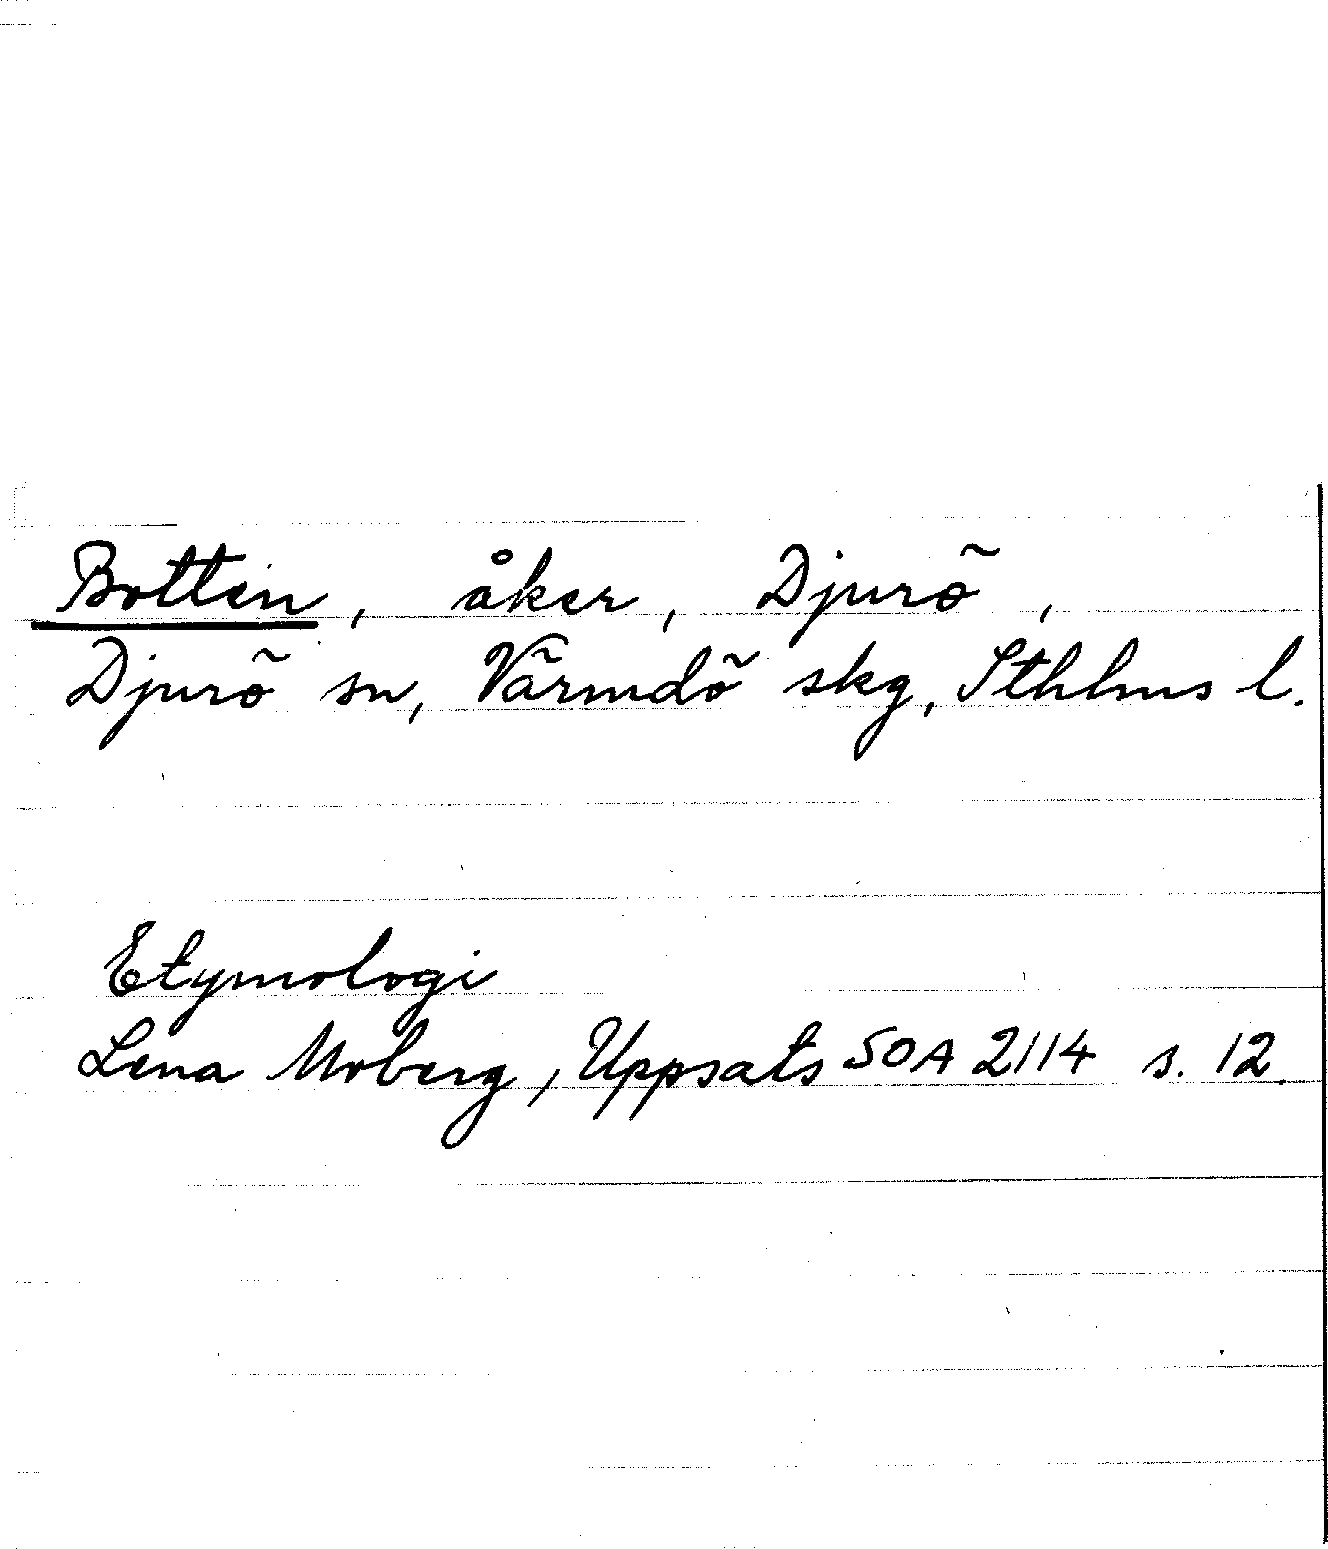 Botten, åker, Djurö,
Djurö sn, Värmdö skg, Sthlms l.
Etymologi
Lena Moberg, Uppsats SOA 2114 s. 12.